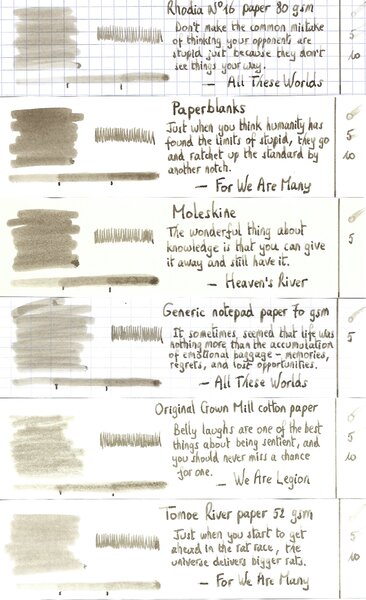 Rhodia N°16 paper 80 gsm
Don't make the common mistake
of thinking your opponent are
stupid just because they don't
see things your way.
— All These Worlds
0
5
10
Paperblanks
Just when you think humanity has
found the limits of stupid, they go
and ratchet up the standard by
another notch.
— For We Are Many
0
5
10
Moleskine
The wonderful thing about
knowledge is that you can give
it away and still have it.
— Heaven's River
0
5
Generic notepad paper 70 gsm
It sometimes seemed that life was
nothing more than the accumulation
of emotional baggage - memories,
regrets, and lost opportunities.
— All These Worlds
0
5
Original Crown Mill cotton paper
Belly laughs are one of the best
things about being sentient, and
you should never miss a chance
for one.
— We Are Legion
0
5
10
Tomoe River paper 52 gsm
Just when you start to get
ahead in the rat race, the
universe delivers bigger rats.
— For We Are Many
0
5
10